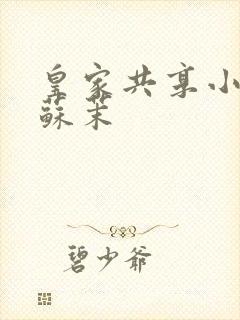 皇家共享小
蘇茉
碧少爷